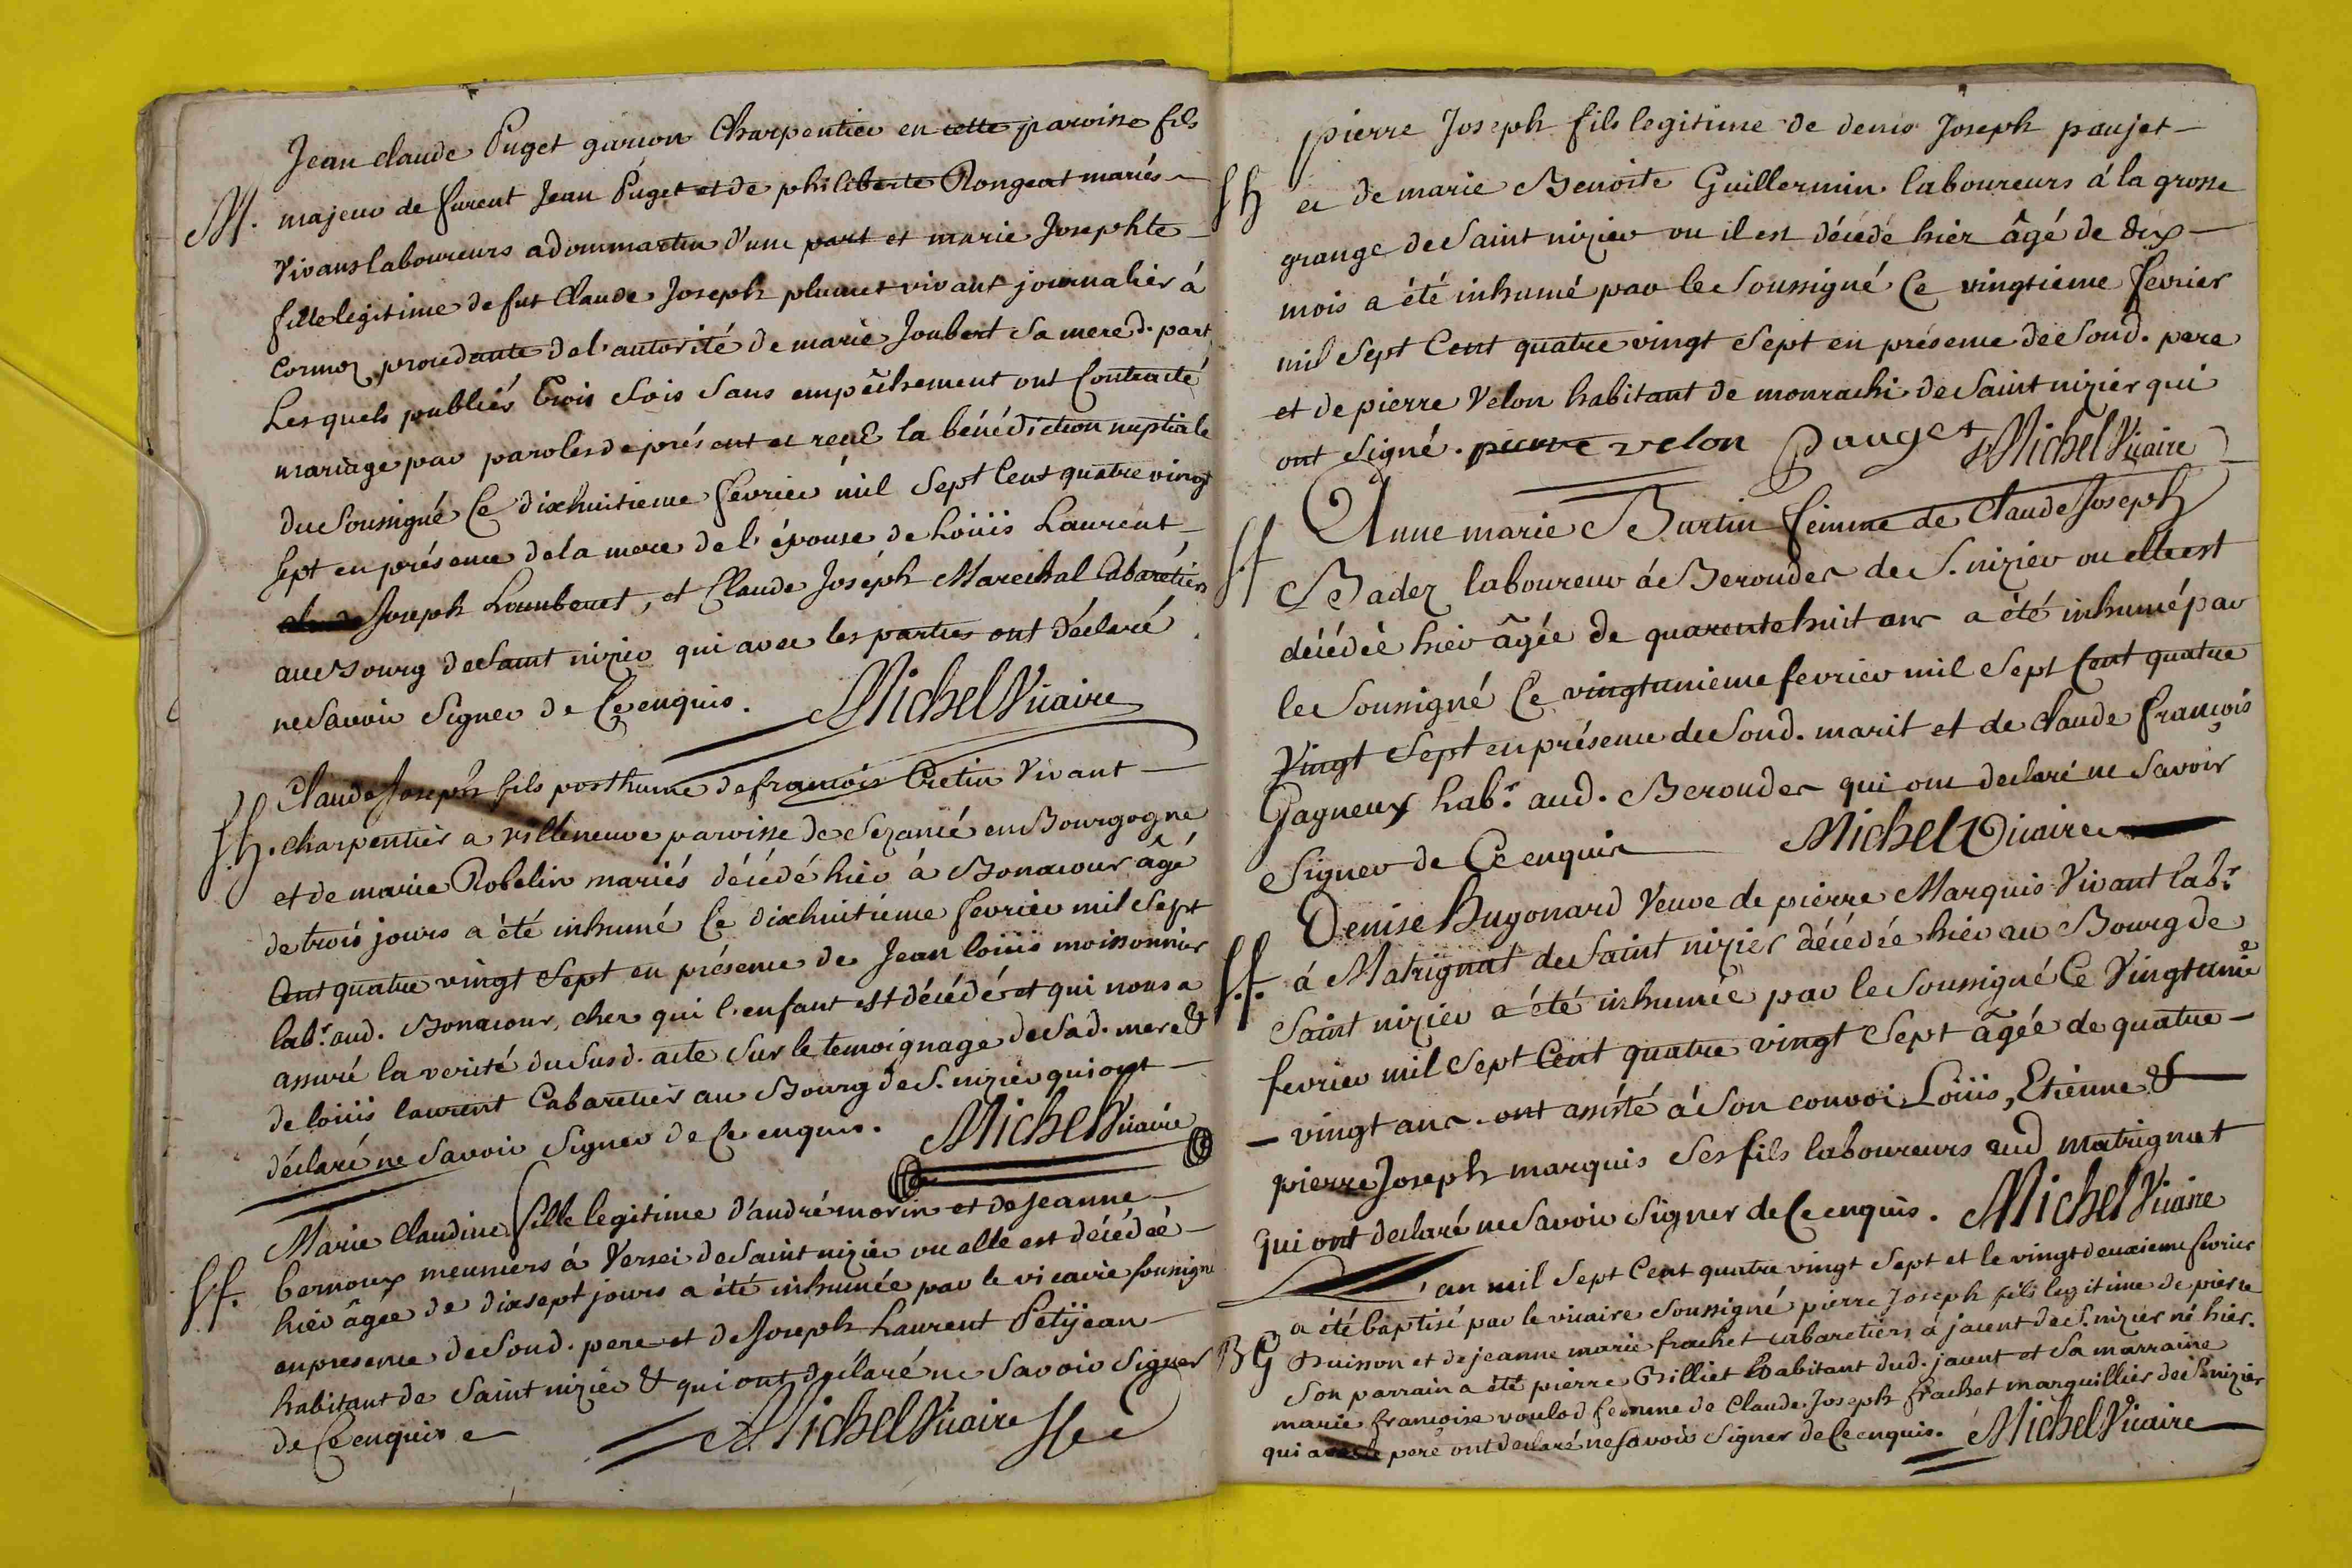 Jean claude Puget garcon Charpentier en cette paroisse fils
M. majeur de furent Jean Puget et de philiberte Rongeat mariés
Vivans laboureurs a dommartin d'une part et marie Josephte
fille legitime de fut Claude Joseph plumet vivant journalier à
Cormoz procedante de l'autorité de marie Joubert Sa mere d. part
Lesquels publiés trois fois Sans empêchement ont Contracté
mariage par paroles de présent et reçu la bénédiction nuptiale
du Soussigné Ce dixhuitieme fevrier mil Sept Cent quatre vingt
Sept en présence de la mere de l'épouse de Loüis Laurent
Joseph Loumberet, et Claude Joseph Marechal Cabaretiers
au Bourg de Saint nizier qui avec les parties ont déclaré
ne Savoir Signer de Ce enquis. Michel Vicaire
Claude Joseph fils posthume de francois Cretin Vivant
Sh. charpentier a villeneuve paroisse de Sezanié en Bourgogne
et de marie Robelin mariés décédé hier à Bonacour âgé
de trois jours a été inhumé Ce dixhuitieme fevrier mil Sept
Cent quatre vingt Sept en présence de Jean loüis moissonnier
labr. aud. Bonacour, chez qui l'enfant est décédé et qui nous a
assuré la verité du Susd. acte Sur le temoignage de Sad. mere &
de loüis laurent Cabaretier au Bourg de S. nizier qui ont
déclaré ne Savoir Signer de Ce enquis. Michel Vicaire
Marie Claudine fille legitime d'andré morin et de Jeanne
Sf. bernoux meuniers à Versei de Saint nizier ou elle est décédée
hier âgée de dixsept jours a été inhumée par le vicaire soussigné
en presence de Sond. pere et de Joseph Laurent Petijean
habitant de Saint nizier & qui ont déclaré ne Savoir Signer
de Ce enquis Michel Vicaire
pierre Joseph fils legitime de denis Joseph paujet
Sh et de marie Benoite Guillermin laboureurs à la grosse
grange de Saint nizier ou il est décédé hier âgé de dix
mois a été inhumé par le Soussigné Ce vingtieme fevrier
mil Sept Cent quatre vingt Sept en présence de Sond. pere
et de pierre Velon habitant de monrachi de Saint nizier qui
ont Signé. pierre velon Pauget Michel Vicaire
Anne marie Burtin femme de Claude Joseph
Sf Badez laboureur à Berouder de S. nizier ou elle est
décédée hier âgée de quarente huit ans a été inhumé par
le Soussigné Ce vingtunieme fevrier mil Sept Cent quatre
Vingt Sept en présence de Sond. marit et de claude françois
Gagneux habr. aud. Berouder qui ont declaré ne Savoir
Signer de Ce enquis Michel Vicaire
Denise Hugonard Veuve de pierre Marquis Vivant labr.
Sf. à Matrignat de Saint nizier décédée hier au Bourg de
Saint nizier a été inhumée par le Soussigné Ce Vingtunie
fevrier mil Sept Cent quatre vingt Sept âgée de quatre
vingt ans. ont assisté à Son convoi Loüis, Etienne &
pierre Joseph marquis Ses fils laboureurs aud matrignat
Qui ont declaré ne Savoir Signer de Ce enquis. Michel Vicaire
L'an mil Sept Cent quatre vingt Sept et le vingt deuxieme fevrier
a été baptisé par le vicaire Soussigné pierre Joseph fils legitime de pierre
BG Buisson et de jeanne marie frachet cabaretiers à jacent de S. nizier né hier.
Son parrain a été pierre Billiet habitant dud. jacent et Sa marraine
marie francoise voulod femme de Claude Joseph frachet marguillier de S. nizier
qui avec le pere ont declaré ne Savoir Signer de Ce enquis. Michel Vicaire